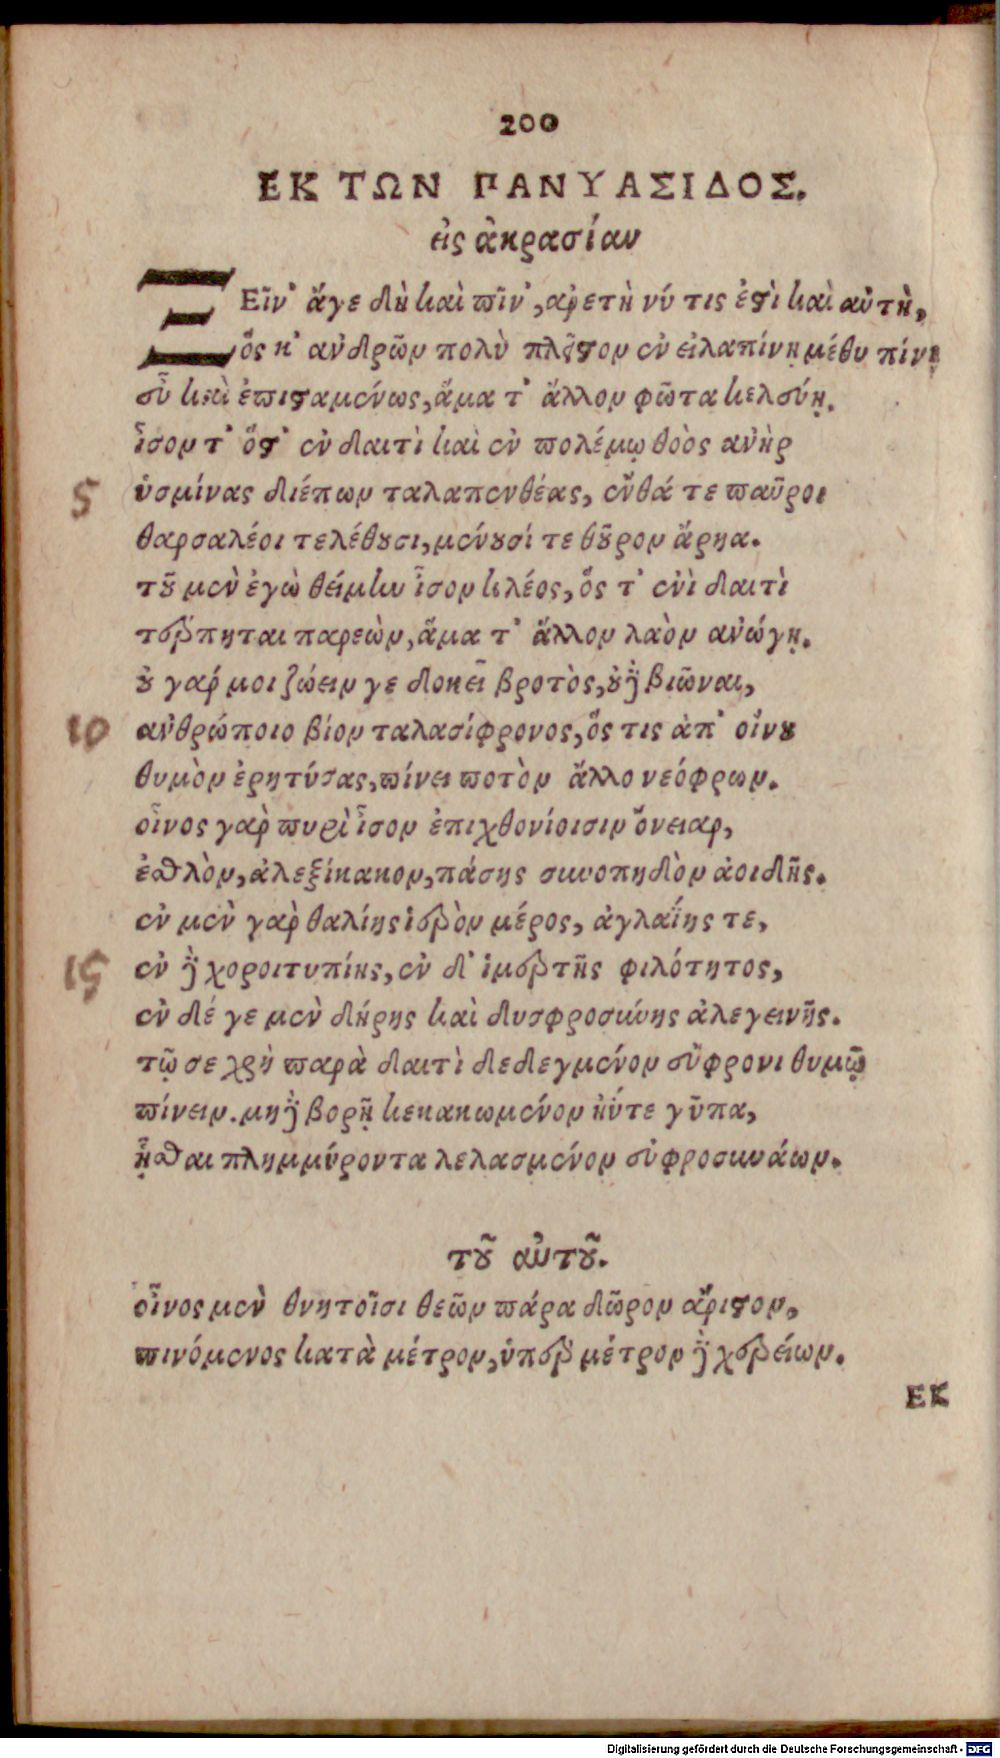 200
ΕΚ ΤΩΝ ΠΑΝΥΑΣΙΔΟΣ.
εἰς ἀκρασίαν
ΞΕῖν' ἄγε δὴ καὶ πῖν', ἀρετὴ νύ τις ἐστὶ καὶ αὐτὴ,
ὅς κ' ἀνδρῶν πολὺ πλεῖστον ἐν εἰλαπίνῃ μέθυ πίνῃ
εὖ καὶ ἐπισταμένως, ἅμα τ' ἄλλον φῶτα κελεύῃ.
ἶσον τ' ὅστ' ἐν δαιτὶ καὶ ἐν πολέμῳ θοὸς ἀνὴρ
5 ὑσμίνας διέπων ταλαπενθέας, ἔνθά τε παῦροι
θαρσαλέοι τελέθουσι, μένουσί τε θοῦρον ἄρηα.
τοῦ μὲν ἐγὼ θείμην ἶσον κλέος, ὅς τ' ἐνὶ δαιτὶ
τέρπηται παρεὼν, ἅμα τ' ἄλλον λαὸν ἀνώγῃ.
οὐ γάρ μοι ζώειν γε δοκεῖ βροτὸς, οὐδὲ βιῶναι,
10 ἀνθρώποιο βίον ταλασίφρονος, ὅς τις ἀπ' οἴνου
θυμὸν ἐρητύσας, πίνει ποτὸν ἄλλο νεόφρων.
οἶνος γὰρ πυρὶ ἶσον ἐπιχθονίοισιν ὄνειαρ,
ἐσθλὸν, ἀλεξίκακον, πάσης συνοπηδὸν ἀοιδῆς.
ἐν μὲν γὰρ θαλίης ἱερὸν μέρος, ἀγλαΐης τε,
15 ἐν δὲ χοροιτυπίης, ἐν δ' ἱμερτῆς φιλότητος,
ἐν δέ γε μὲν δήρης καὶ δυσφροσύνης ἀλεγεινῆς.
τῷ σε χρὴ παρὰ δαιτὶ δεδεγμένον εὔφρονι θυμῷ
πίνειν. μηδὲ βορῇ κεκακωμένον ἠΰτε γῦπα,
ἧσθαι πλημμύροντα λελασμένον εὐφροσυνάων.
τοῦ αὐτοῦ.
οἶνος μὲν θνητοῖσι θεῶν πάρα δῶρον ἄριστον,
πινόμενος κατὰ μέτρον, ὑπὲρ μέτρον δὲ χερείων.
ΕΚ
Digitalisierung gefördert durch die Deutsche Forschungsgemeinschaft - DFG